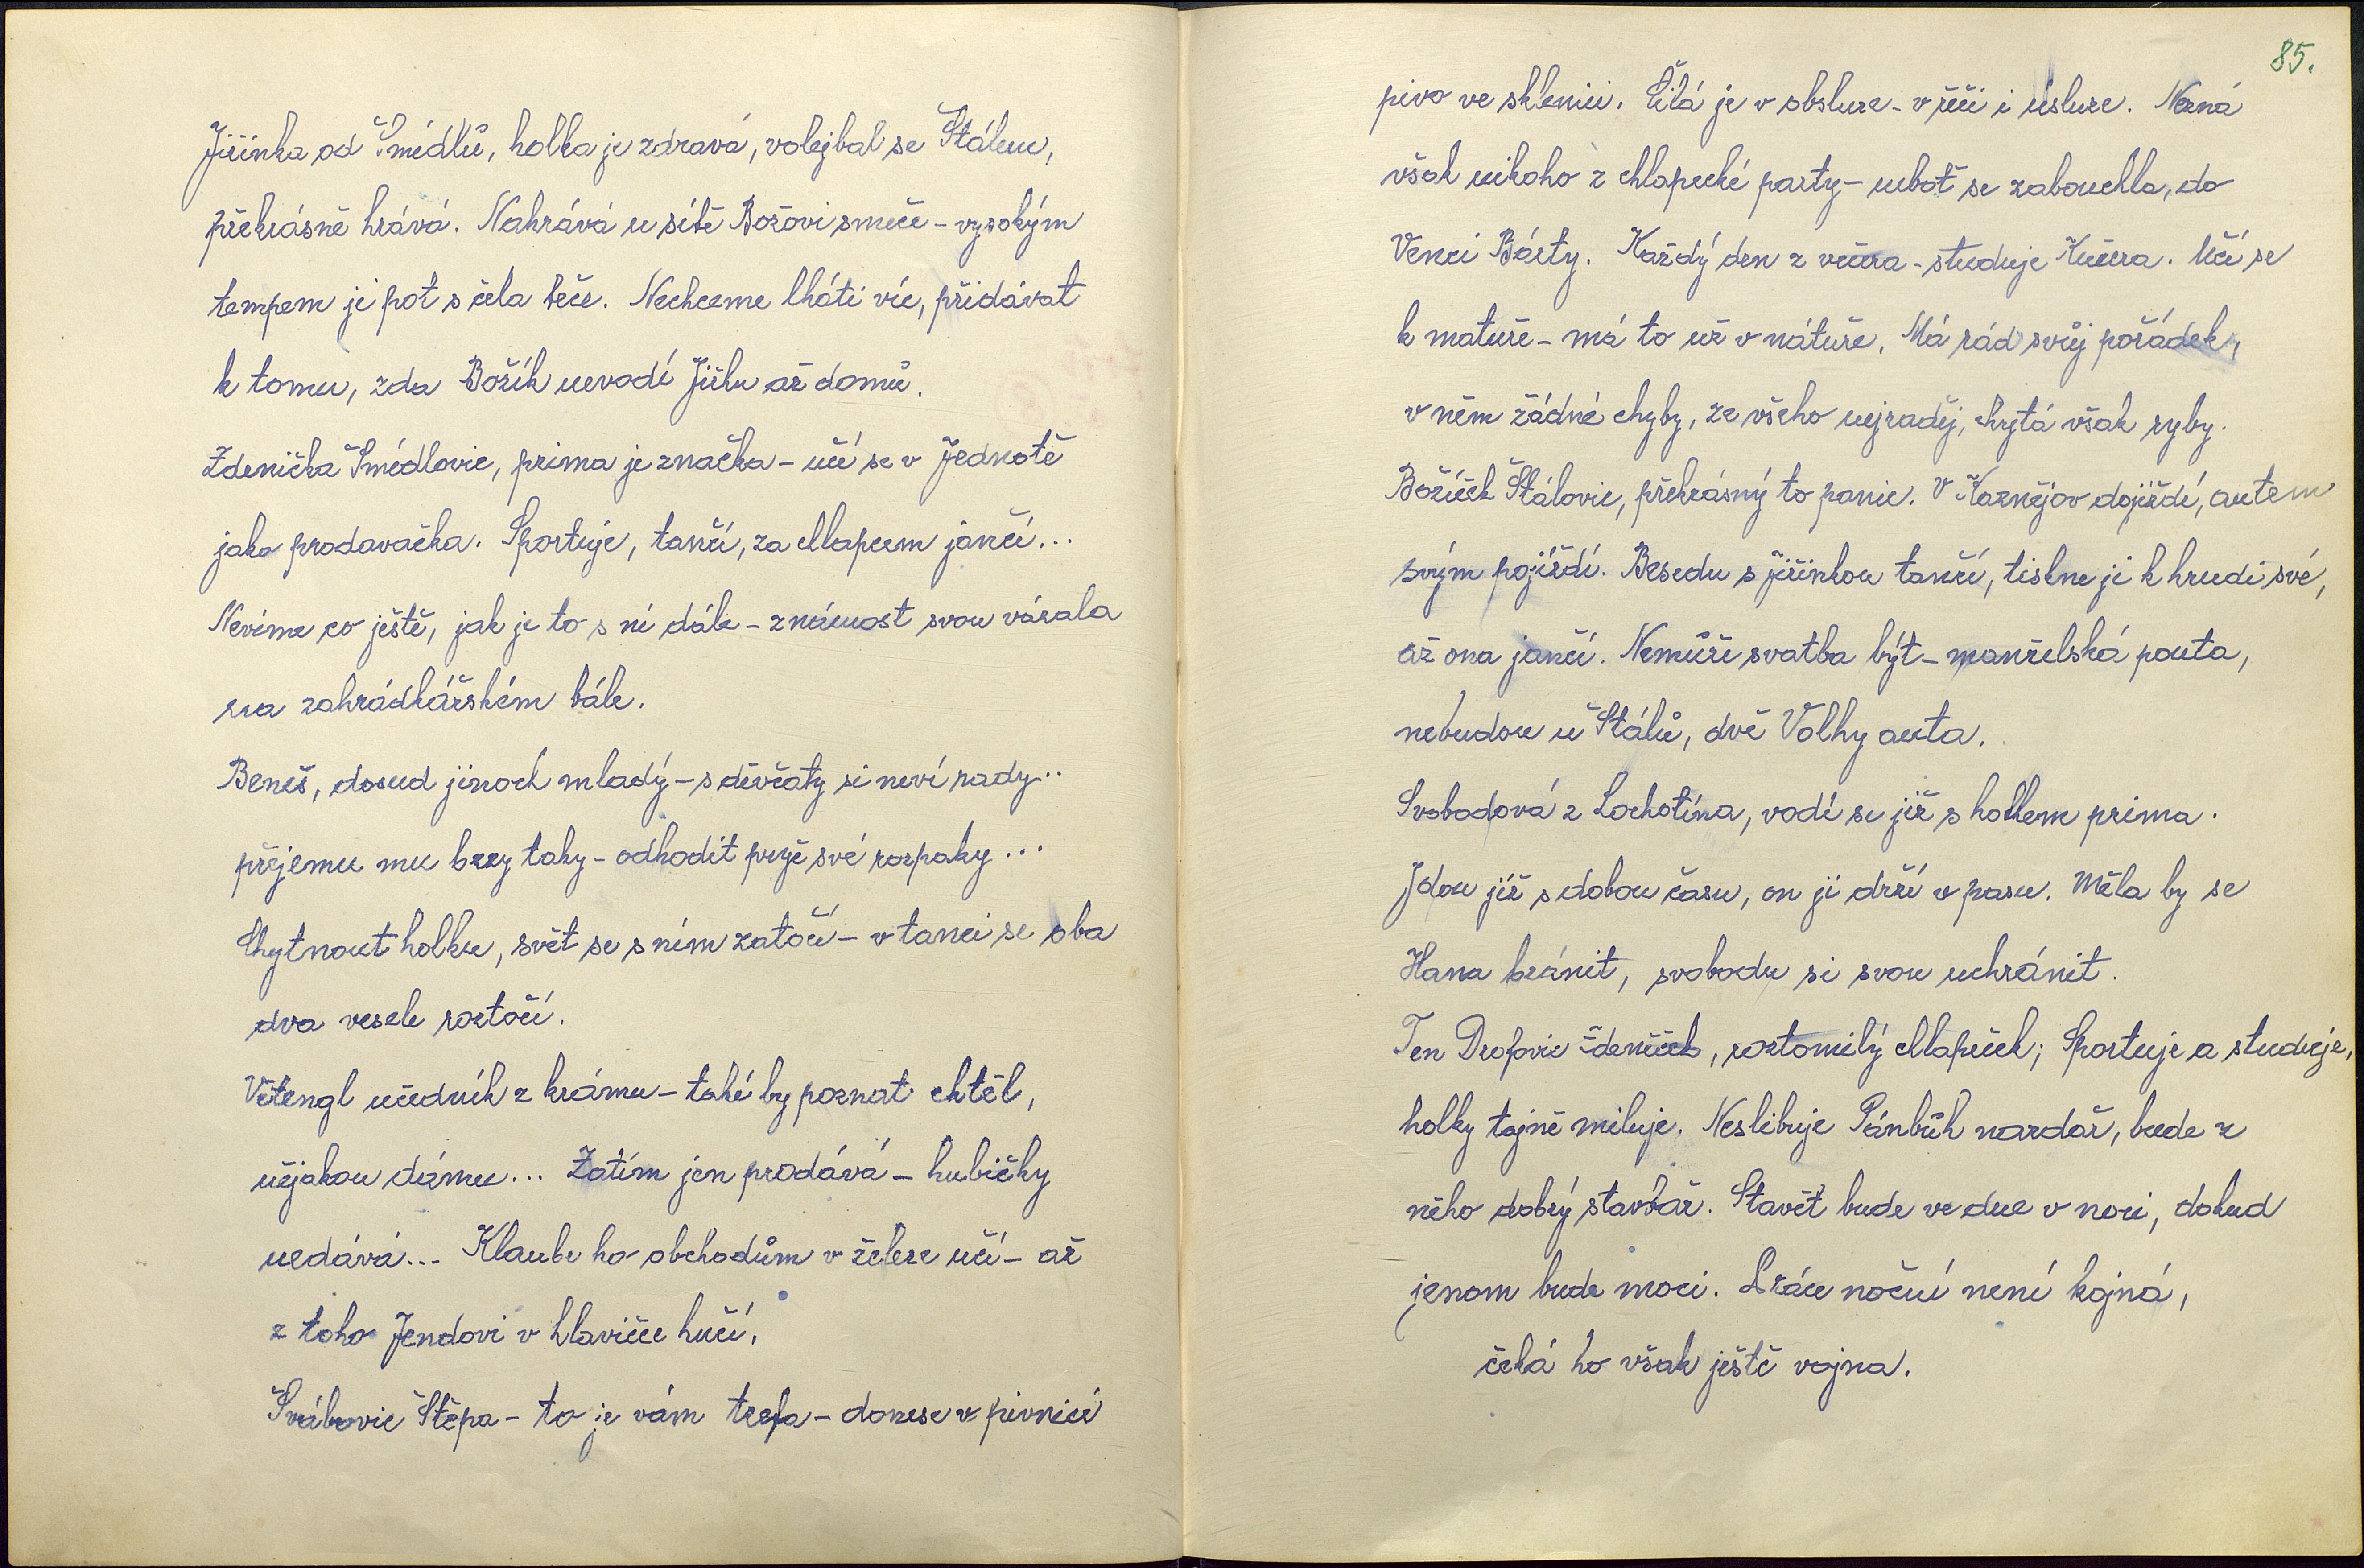 Jiřinka od Šmédlů, holka je zdravá, volejbal se Štálem,
překrásně hrává. Nahrává u sítě Božovi smeče - vysokým
tempem jí pot s čela teče. Nechceme lháti víc, přidávat
k tomu, zda Božík nevodí Jiřku až domů.
Zdenička Šmédlovic, prima je značka - učí se v Jednotě
jako prodavačka. Sportuje, tančí, za chlapcem jančí...
Nevíme co ještě, jak je to s ní dále - známost svou vázala
na zahrádkářském bále.
Beneš, dosud jinoch mladý - s děvčaty si neví rady..
přejemu mu brzy taky - odhodit pryč své rozpaky...
Chytnout holku, svět se s ním zatočí - v tanci se oba
dva vesele roztočí.
Větengl učedník z krámu - také by poznat chtěl,
nějakou dámu... Zatím jen prodává - hubičky
nedává... Klaube ho obchodům v železe učí - až
z toho Jendovi v hlavičce hučí.
Švábovic Štěpa - to je vám trefa - donese v pivnici
85.
pivo ve sklenici. Čilá je v obsluze - v řeči i úsluze. Nezná
však nikoho z chlapecké party - neboť se zabouchla, do
Venci Bárty. Každý den z večera - studuje Kučera. Učí se
k matuře - má to už v náтuře. Má rád svůj pořádek,
v něm žádné chyby, ze všeho nejraděj, chytá však ryby.
Božíček Štálovic, překrásný to panic. V Kaznějov dojíždí, autem
svým pojíždí. Besedu s Jiřinkou tančí, tiskne ji k hrudi své,
až ona jančí. Nemůže svatba být - manželská pouta,
nebudou u Štálů, dvě Volhy auta.
Svobodová z Lochotína, vodí se již s hochem prima.
Jdou již s dobou času, on ji drží v pasu. Měla by se
Hana bránit, svobodu si svou uchránit.
Ten Drofovic Zdeneček, roztomilý chlapeček; Sportuje a studuje,
holky tajně miluje. Neslibuje Pánbůh nazdař, bude z
něho dobrý stavbař. Stavět bude ve dne v noci, dokud
jenom bude moci. Práce noční není hojná,
čeká ho však ještě vojna.